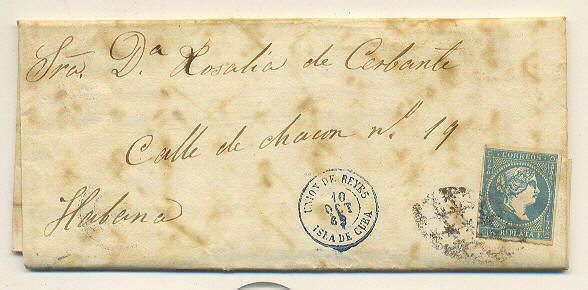 Sra. Dª Rosalia de Cerbante
Calle de chacon nº 19
Habana
UNION DE REYES
10
OCT
ISLA DE CUBA
CORREOS
Rl PLATA